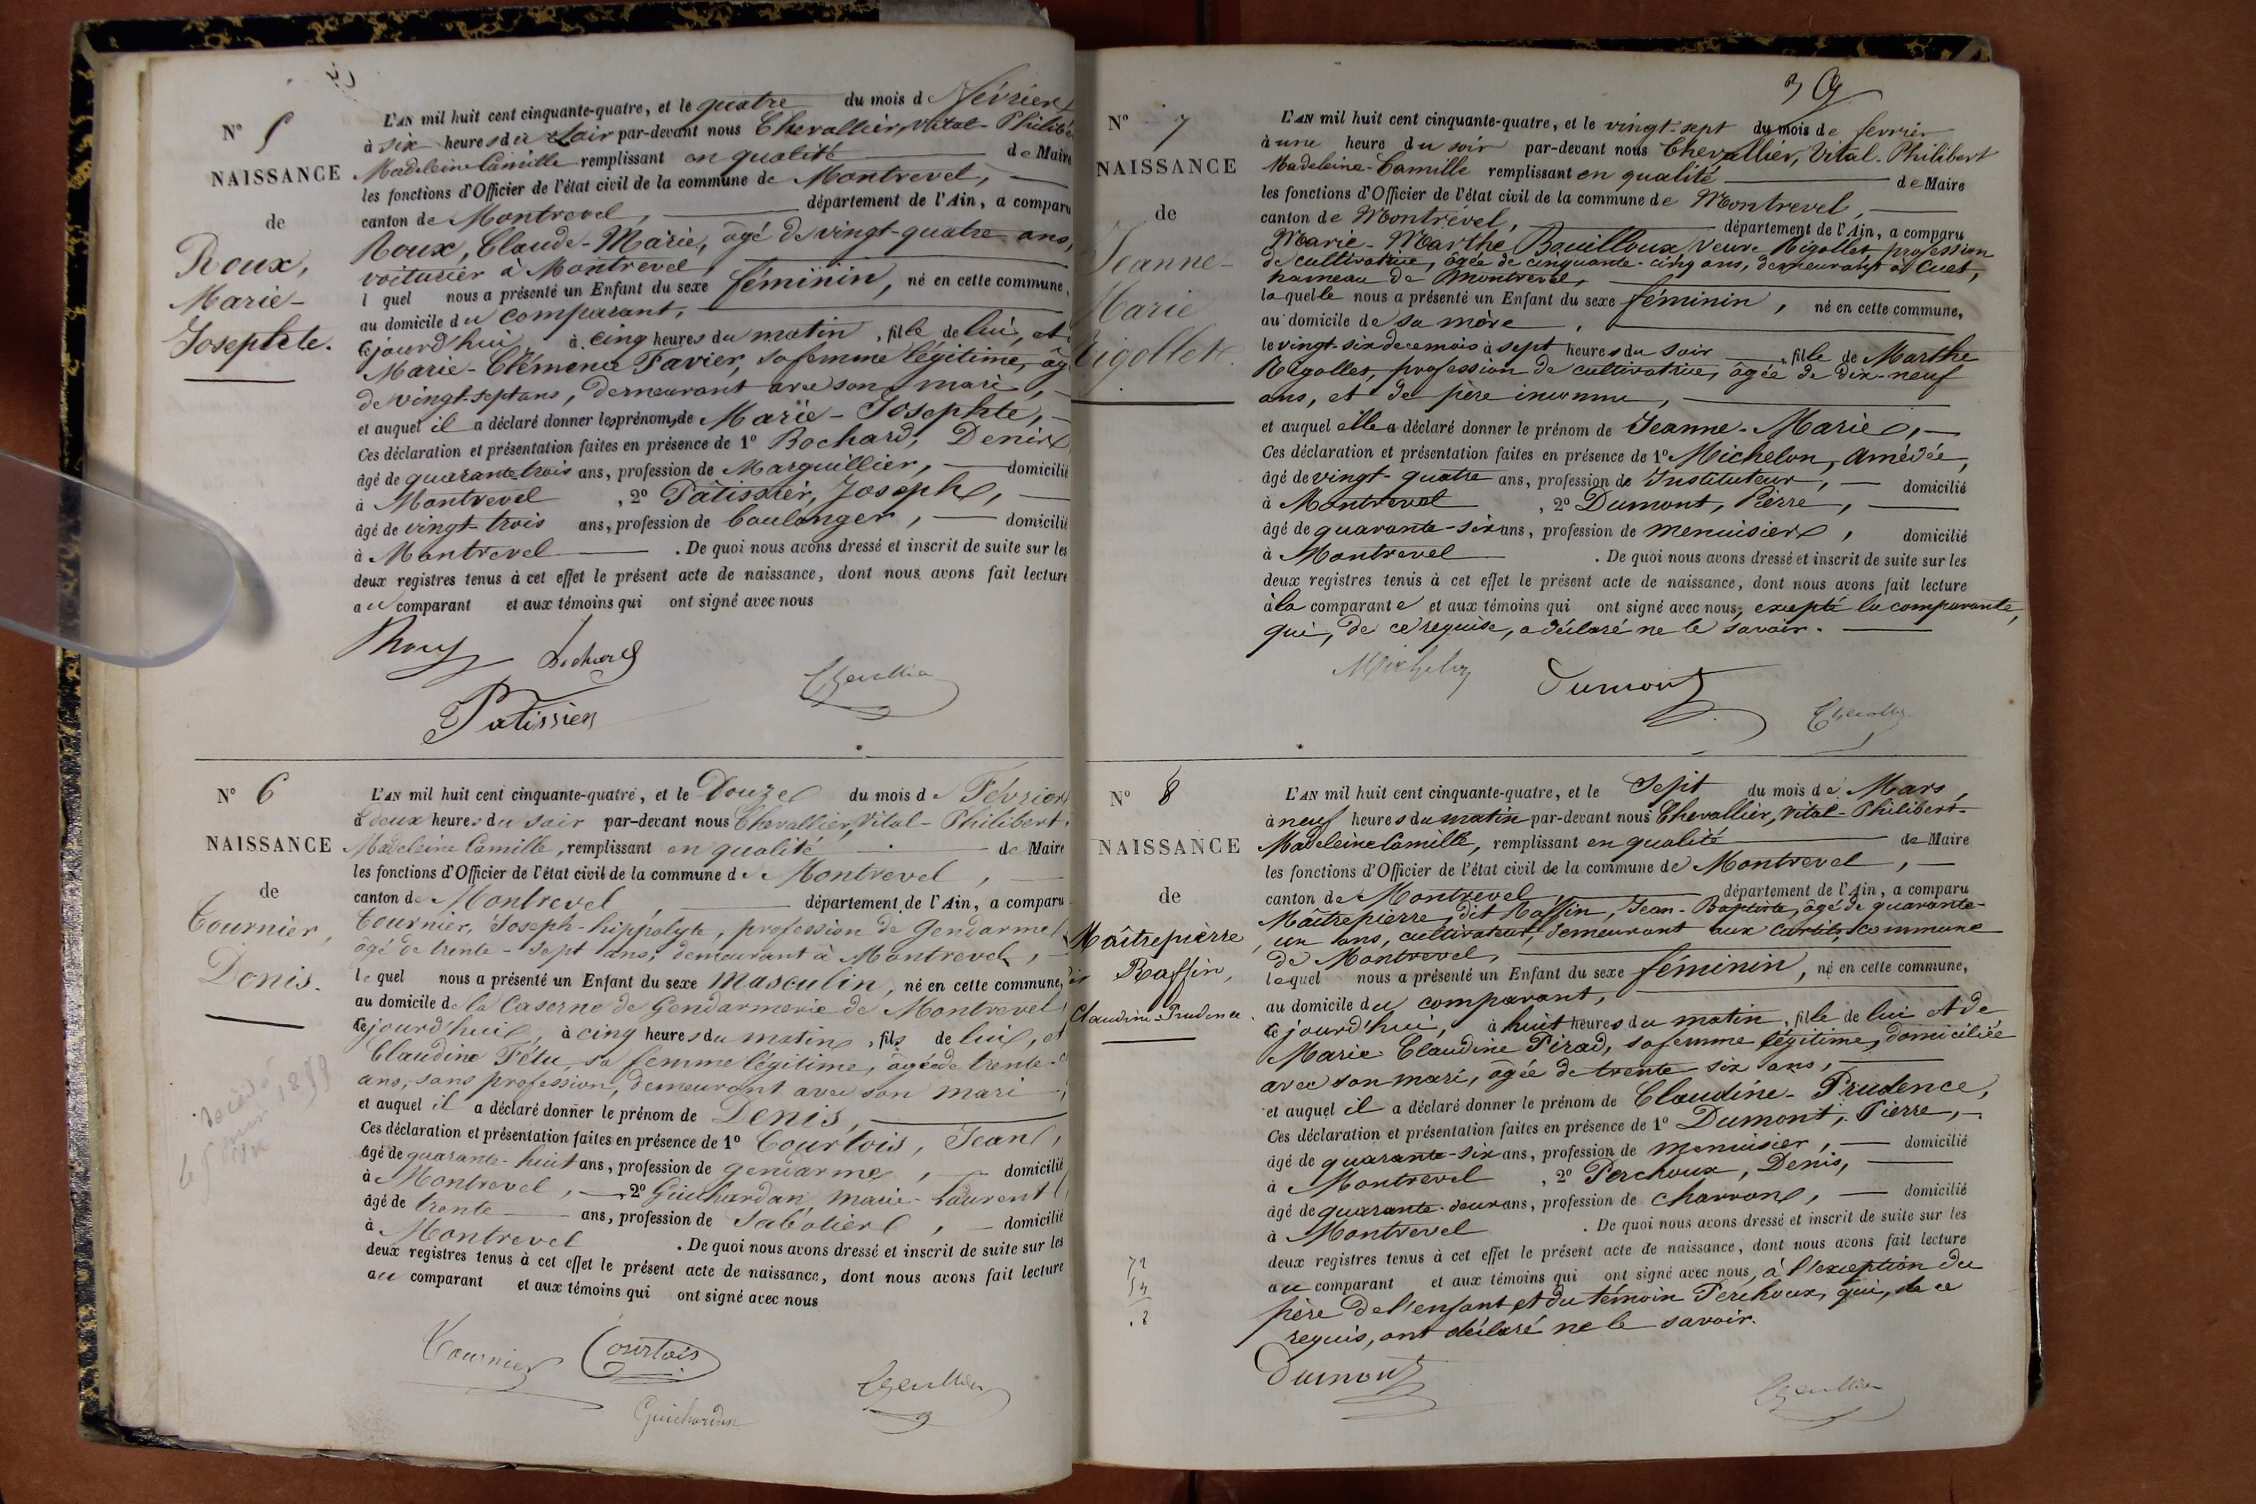 N° 5
NAISSANCE
de
Roux,
Marie-
Josephte.
L'AN mil huit cent cinquante-quatre, et le quatre du mois de Février
à six heures du soir par-devant nous Chevallier, Vital-Philibert
Madeleine Camille remplissant en qualité de Maire
les fonctions d'Officier de l'état civil de la commune de Montrevel,
canton de Montrevel, département de l'Ain, a comparu
Roux, Claude-Marie, âgé de vingt-quatre ans,
voiturier à Montrevel,
l quel nous a présenté un Enfant du sexe féminin, né en cette commune,
au domicile du comparant,
cejourd'hui à cinq heures du matin, fille de lui, et
Marie-Clémence Favier, sa femme légitime, âg
de vingt-sept ans, demeurant avec son mari,
et auquel il a déclaré donner les prénoms de Marie-Josephte,
Ces déclaration et présentation faites en présence de 1° Bochard, Denis
âgé de quarante trois ans, profession de Marguillier, domicilié
à Montrevel, 2° Pâtissier, Joseph,
âgé de vingt-trois ans, profession de boulanger, domicilié
à Montrevel. De quoi nous avons dressé et inscrit de suite sur les
deux registres tenus à cet effet le présent acte de naissance, dont nous avons fait lecture
au comparant et aux témoins qui ont signé avec nous
Roux Bochard
Chevallier
Patissier
N° 6
NAISSANCE
de
Tournier,
Denis.
L'AN mil huit cent cinquante-quatre, et le Douze du mois de Février
à deux heures du soir par-devant nous Chevallier, Vital-Philibert
Madeleine Camille, remplissant en qualité de Maire
les fonctions d'Officier de l'état civil de la commune de Montrevel,
canton de Montrevel, département de l'Ain, a comparu
Tournier, Joseph-hippolyte, profession de Gendarme
âgé de trente-sept ans, demeurant à Montrevel,
lequel nous a présenté un Enfant du sexe Masculin, né en cette commune,
au domicile de la Caserne de Gendarmerie de Montrevel
cejourd'hui, à cinq heures du matin, fils de lui, et
Claudine Fétu, sa femme légitime, âgée de trente
ans, sans profession, demeurant avec son mari
et auquel il a déclaré donner le prénom de Denis,
Ces déclaration et présentation faites en présence de 1° Courtois, Jean,
âgé de quarante-huit ans, profession de gendarme, domicilié
à Montrevel, 2° Guichardan, Marie-Laurent
âgé de trente ans, profession de Sabotier, domicilié
à Montrevel. De quoi nous avons dressé et inscrit de suite sur les
deux registres tenus à cet effet le présent acte de naissance, dont nous avons fait lecture
au comparant et aux témoins qui ont signé avec nous
Tournier Courtois
Chevallier
Guichardan
N° 7
NAISSANCE
de
Jeanne-
Marie
Rigollet
L'AN mil huit cent cinquante-quatre, et le vingt-sept du mois de fevrier
à une heure du soir par-devant nous Chevallier, Vital-Philibert
Madeleine-Camille remplissant en qualité de Maire
les fonctions d'Officier de l'état civil de la commune de Montrevel,
canton de Montrevel, département de l'Ain, a comparu
Marie-Marthe Bouilloux, veuve Rigollet, profession
de cultivatrice, âgée de cinquante-cinq ans, demeurant à Cuet,
hameau de Montrevel,
laquelle nous a présenté un Enfant du sexe féminin, né en cette commune,
au domicile de sa mère,
le vingt-six de ce mois à sept heures du soir, fille de Marthe
Rigollet, profession de cultivatrice, âgée de dix-neuf
ans, et de père inconnu,
et auquel elle a déclaré donner le prénom de Jeanne-Marie,
Ces déclaration et présentation faites en présence de 1° Michelon, Amédée,
âgé de vingt-quatre ans, profession de Instituteur, domicilié
à Montrevel, 2° Dumont, Pierre,
âgé de quarante-six ans, profession de menuisier, domicilié
à Montrevel. De quoi nous avons dressé et inscrit de suite sur les
deux registres tenus à cet effet le présent acte de naissance, dont nous avons fait lecture
à la comparante et aux témoins qui ont signé avec nous, excepté la comparante,
qui, de ce requise, a déclaré ne le savoir.
Michelon Dumont
Chevallier
N° 8
NAISSANCE
de
Maîtrepierre
dit
Raffin,
Claudine-Prudence.
L'AN mil huit cent cinquante-quatre, et le Sept du mois de Mars,
à neuf heures du matin par-devant nous Chevallier, Vital-Philibert-
Madeleine Camille, remplissant en qualité de Maire
les fonctions d'Officier de l'état civil de la commune de Montrevel,
canton de Montrevel département de l'Ain, a comparu
Maîtrepierre, dit Raffin, Jean-Baptiste, âgé de quarante-
un ans, cultivateur, demeurant aux commune
de Montrevel,
lequel nous a présenté un Enfant du sexe féminin, né en cette commune,
au domicile du comparant,
cejourd'hui, à huit heures du matin, fille de lui et de
Marie Claudine Pirad, sa femme légitime, domiciliée
avec son mari, âgée de trente six ans,
et auquel il a déclaré donner le prénom de Claudine-Prudence,
Ces déclaration et présentation faites en présence de 1° Dumont, Pierre,
âgé de quarante-six ans, profession de menuisier, domicilié
à Montrevel, 2° Perchoux, Denis,
âgé de quarante-deux ans, profession de charron, domicilié
à Montrevel. De quoi nous avons dressé et inscrit de suite sur les
deux registres tenus à cet effet le présent acte de naissance, dont nous avons fait lecture
au comparant et aux témoins qui ont signé avec nous, à l'exception du
père de l'enfant et du témoin Perchoux, qui, de ce
requis, ont déclaré ne le savoir.
Dumont
Chevallier